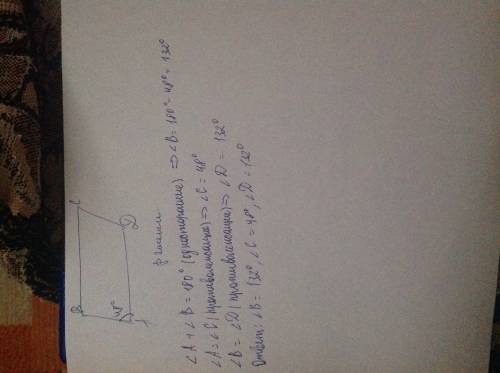 B C
48°
A D
Решение
∠A + ∠B = 180° (односторонние) => ∠B = 180° - 48° = 132°
∠A = ∠C (противолежащие) => ∠C = 48°
∠B = ∠D (противолежащие) => ∠D = 132°
Ответ: ∠B = 132°, ∠C = 48°, ∠D = 132°